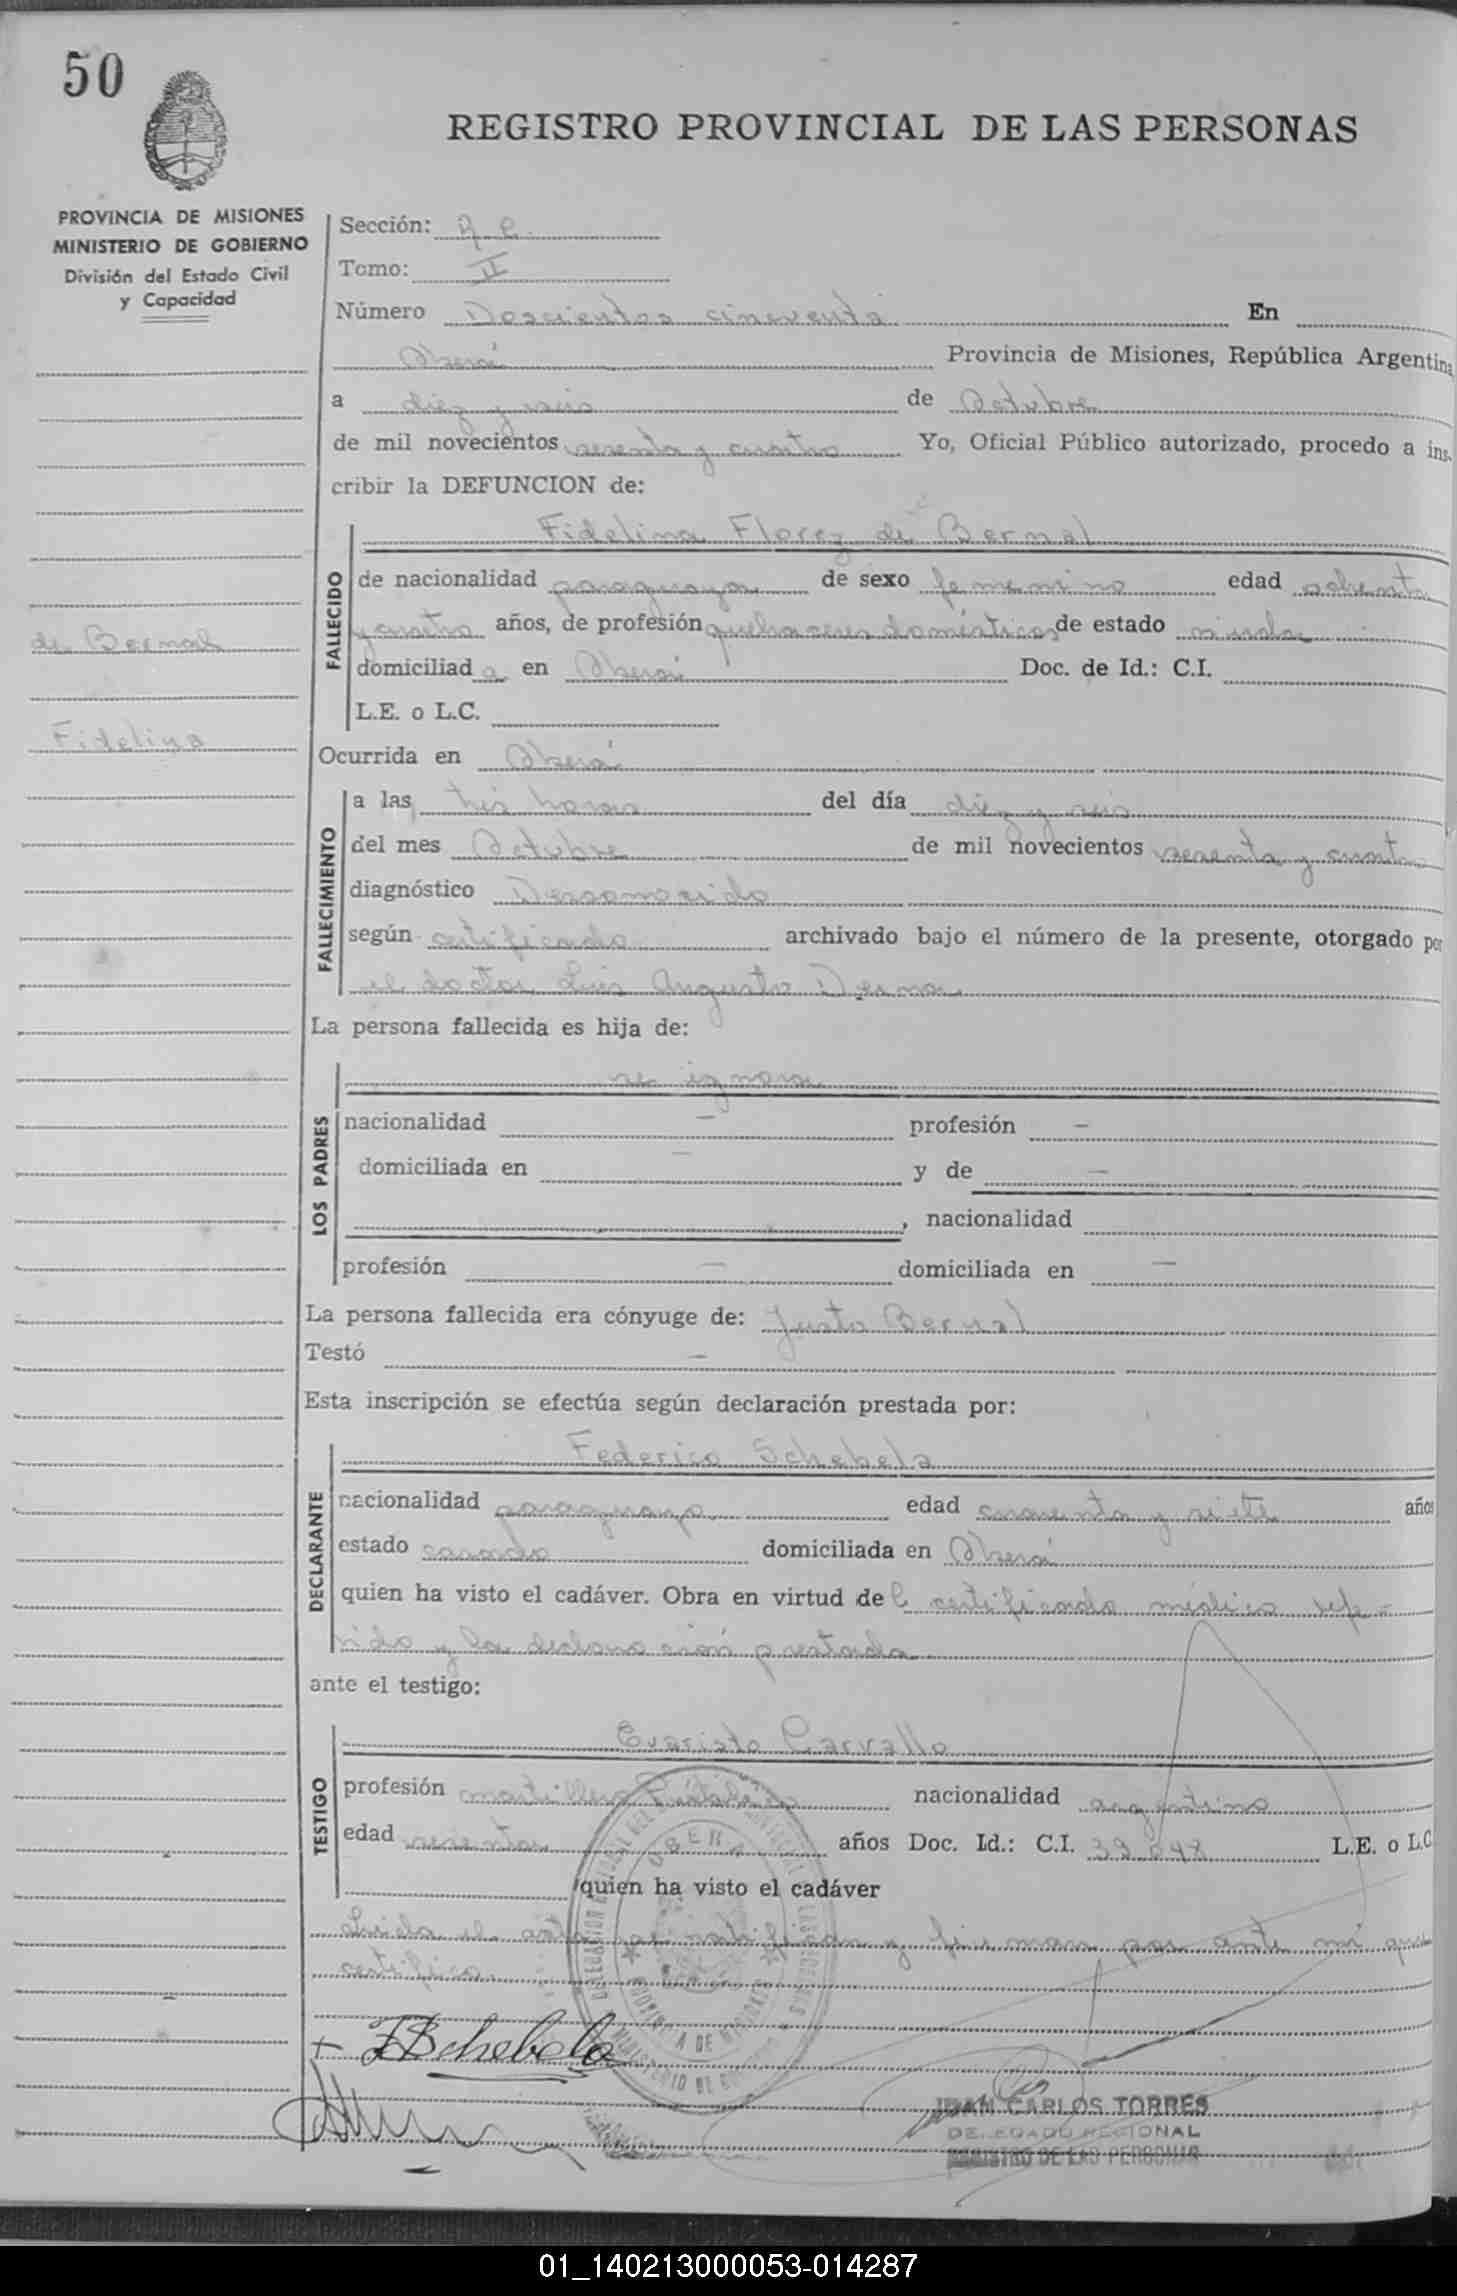 50
REGISTRO PROVINCIAL DE LAS PERSONAS
PROVINCIA DE MISIONES
MINISTERIO DE GOBIERNO
División del Estado Civil
y Capacidad
Sección:
Tomo: II
Número Doscientos cincuenta En
Oberá Provincia de Misiones, República Argentina
a diez y seis de Octubre
de mil novecientos sesenta y cuatro Yo, Oficial Público autorizado, procedo a ins-
cribir la DEFUNCION de:
Fidelina Florez de Bernal
FALLECIDO
de nacionalidad paraguaya de sexo femenino edad ochenta
y cuatro años, de profesión quehaceres domésticos de estado viuda
de Bernal
domiciliada en Oberá Doc. de Id.: C.I.
L.E. o L.C.
Fidelina
Ocurrida en Oberá
FALLECIMIENTO
a las tres horas del día diez y seis
del mes Octubre de mil novecientos sesenta y cuatro
diagnóstico Desconocido
según certificado archivado bajo el número de la presente, otorgado por
el doctor Luis Augusto Derna
La persona fallecida es hija de:
se ignora
LOS PADRES
nacionalidad — profesión —
domiciliada en — y de —
, nacionalidad
profesión — domiciliada en —
La persona fallecida era cónyuge de: Justo Bernal
Testó —
Esta inscripción se efectúa según declaración prestada por:
Federico Schebela
DECLARANTE
nacionalidad paraguayo edad cuarenta y siete años
estado casado domiciliada en Oberá
quien ha visto el cadáver. Obra en virtud del certificado médico refe-
rido y la declaración prestada
ante el testigo:
Evaristo Carvallo
TESTIGO
profesión martillero Público nacionalidad argentino
edad sesenta años Doc. Id.: C.I. 39.848 L.E. o L.C.
quien ha visto el cadáver
Leida el acta se ratifican y firman por ante mi que
certifico.
OBERA
PROVINCIA DE MISIONES
MINISTERIO DE GOBIERNO
+ FSchebela
JUAN CARLOS TORRES
DELEGADO REGIONAL
REGISTRO DE LAS PERSONAS
01_140213000053-014287